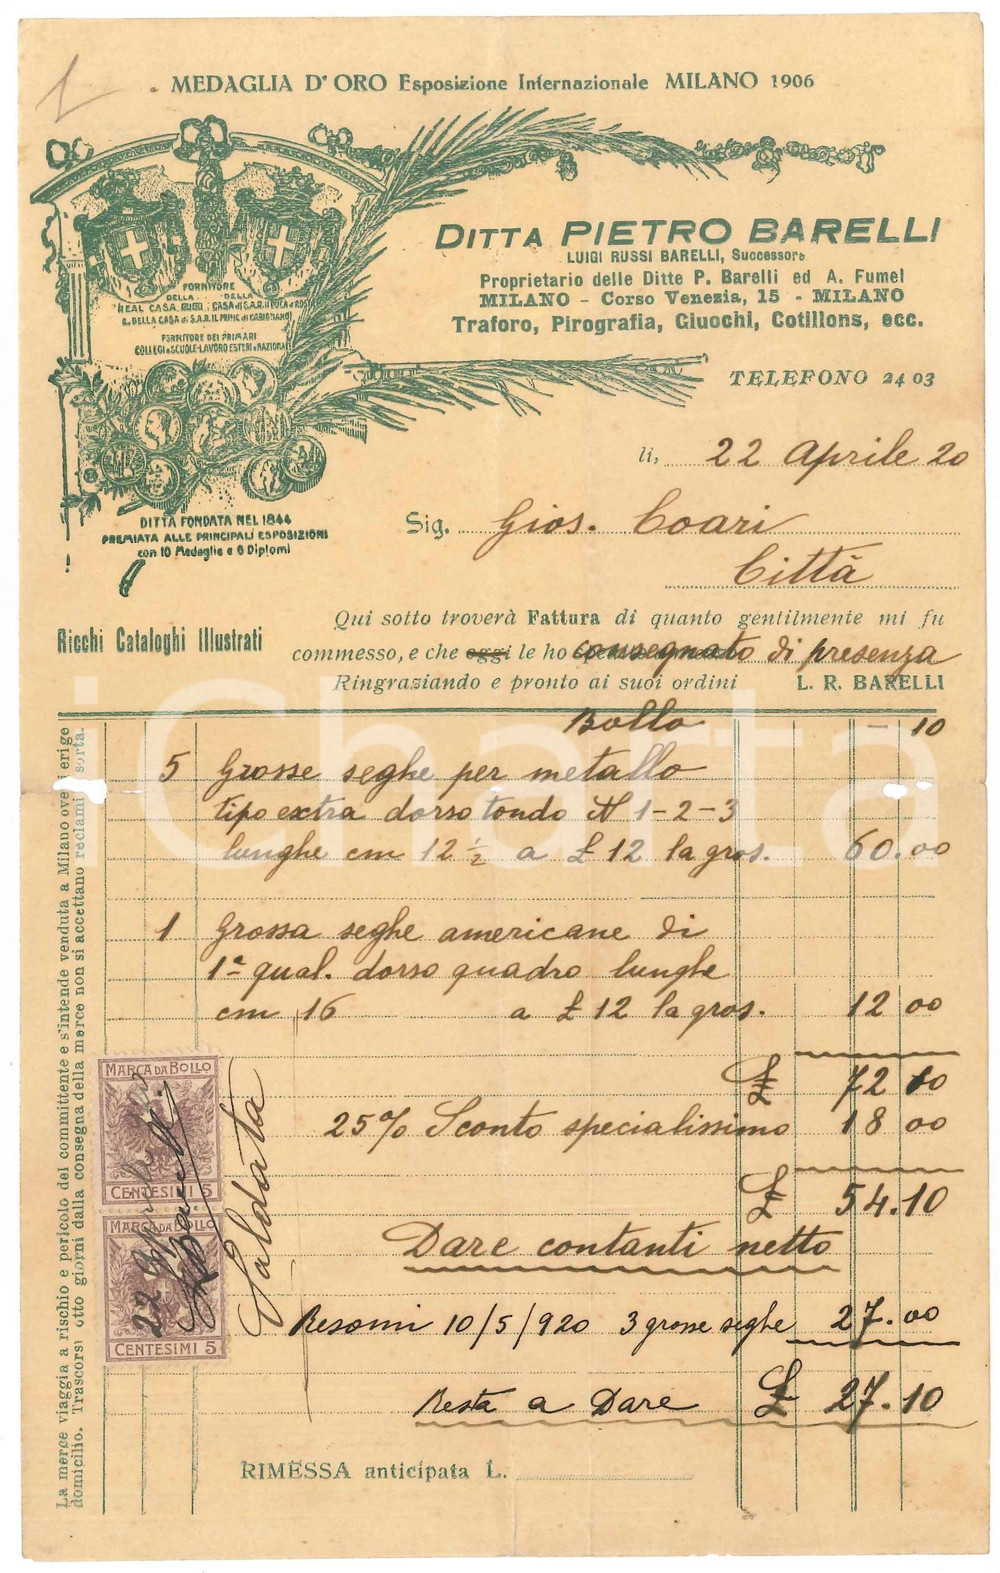 MEDAGLIA D'ORO Esposizione Internazionale MILANO 1906
DITTA PIETRO BARELLI
LUIGI RUSSI BARELLI, Successore
Proprietario delle Ditte P. Barelli ed A. Fumel
MILANO - Corso Venezia, 15 - MILANO
Traforo, Pirografia, Giuochi, Cotillons, ecc.
TELEFONO 24 03
FORNITORE
DELLA DELLA
REAL CASA
E. DELLA CASA di S.A.R. IL PRINC. di CARIGNANO
FORNITORE DEI PRIMARI
COLLEGI e SCUOLE-LAVORO ESTERI e NAZIONALI
DITTA FONDATA NEL 1844
PREMIATA ALLE PRINCIPALI ESPOSIZIONI
con 10 Medaglie e 6 Diplomi
li, 22 Aprile 20
Sig. Gios. Coari
Città
Ricchi Cataloghi Illustrati
Qui sotto troverà Fattura di quanto gentilmente mi fu
commesso, e che oggi le ho consegnato di presenza
Ringraziando e pronto ai suoi ordini L. R. BARELLI
Bollo - 10
5 Grosse seghe per metallo
tipo extra dorso tondo N 1-2-3
lunghe cm 12 1/2 a £ 12 la gros. 60.00
1 Grossa seghe americane di
1ª qual. dorso quadro lunghe
cm 16 a £ 12 la gros. 12 00
£ 72 10
25% Sconto specialissimo 18 00
£ 54.10
Dare contanti netto
Resomi 10/5/920 3 grosse seghe 27.00
Resta a Dare £ 27.10
RIMESSA anticipata L.
MARCA DA BOLLO
CENTESIMI 5
MARCA DA BOLLO
CENTESIMI 5
22 Aprile
Saldata
La merce viaggia a rischio e pericolo del committente e s'intende venduta a Milano ove si erige
domicilio. Trascorsi otto giorni dalla consegna della merce non si accettano reclami di sorta.
iCharta